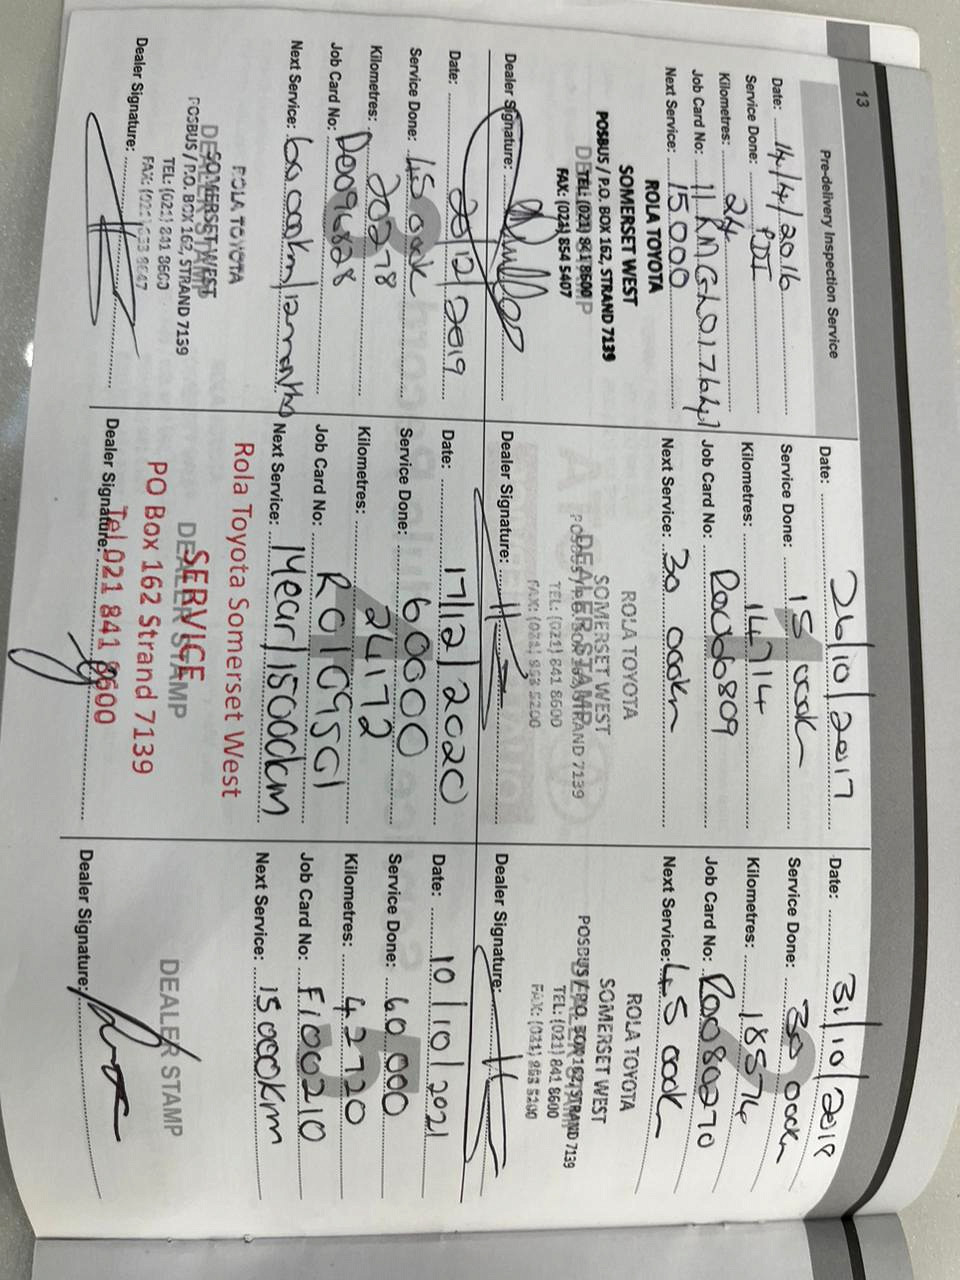 13
Pre-delivery Inspection Service
Date: 14/4/2016
Service Done: PDI
Kilometres: 24
Job Card No:
Next Service: 15000
ROLA TOYOTA
SOMERSET WEST
POSBUS / P.O. BOX 162, STRAND 7139
TEL: (021) 841 8600
FAX: (021) 854 5407
Dealer Signature:
Date: 26/10/2017
Service Done: 15 000km
1
Kilometres: 14714
Job Card No:
Next Service: 30 000km
ROLA TOYOTA
SOMERSET WEST
DEALER STAMP
POSBUS / P.O. BOX 162, STRAND 7139
TEL: (021) 841 8600
FAX: (021) 853 5200
Dealer Signature:
Date: 31/10/2018
Service Done: 30 000km
2
Kilometres: 18574
Job Card No: R0080270
Next Service: 45 000K
ROLA TOYOTA
SOMERSET WEST
DEALER STAMP
POSBUS / P.O. BOX 162, STRAND 7139
TEL: (021) 841 8600
FAX: (021) 853 5200
Dealer Signature:
Date: 20/12/2019
Service Done: 45 000K
3
Kilometres: 20278
Job Card No: D0096828
Next Service: 60 000km/12months
ROLA TOYOTA
SOMERSET WEST
DEALER STAMP
POSBUS / P.O. BOX 162, STRAND 7139
TEL: (021) 841 8600
Dealer Signature:
Date: 17/12/2020
Service Done: 60000
4
Kilometres: 24172
Job Card No: R0109501
Next Service: 1Year/15000km
Rola Toyota Somerset West
SERVICE
DEALER STAMP
PO Box 162 Strand 7139
Tel 021 841 8600
Dealer Signature:
Date: 10/10/2021
Service Done: 60 000
5
Kilometres: 42720
Job Card No: F100210
Next Service: 15 000km
DEALER STAMP
Dealer Signature: